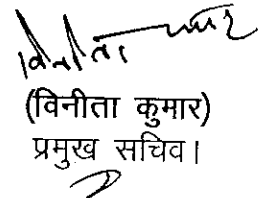 विनीता कुमार
(विनीता कुमार)
प्रमुख सचिव।